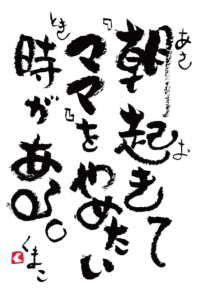 朝起きて
『ママ』を
やめたい
時がある。
くまこ
あさ
お
とき